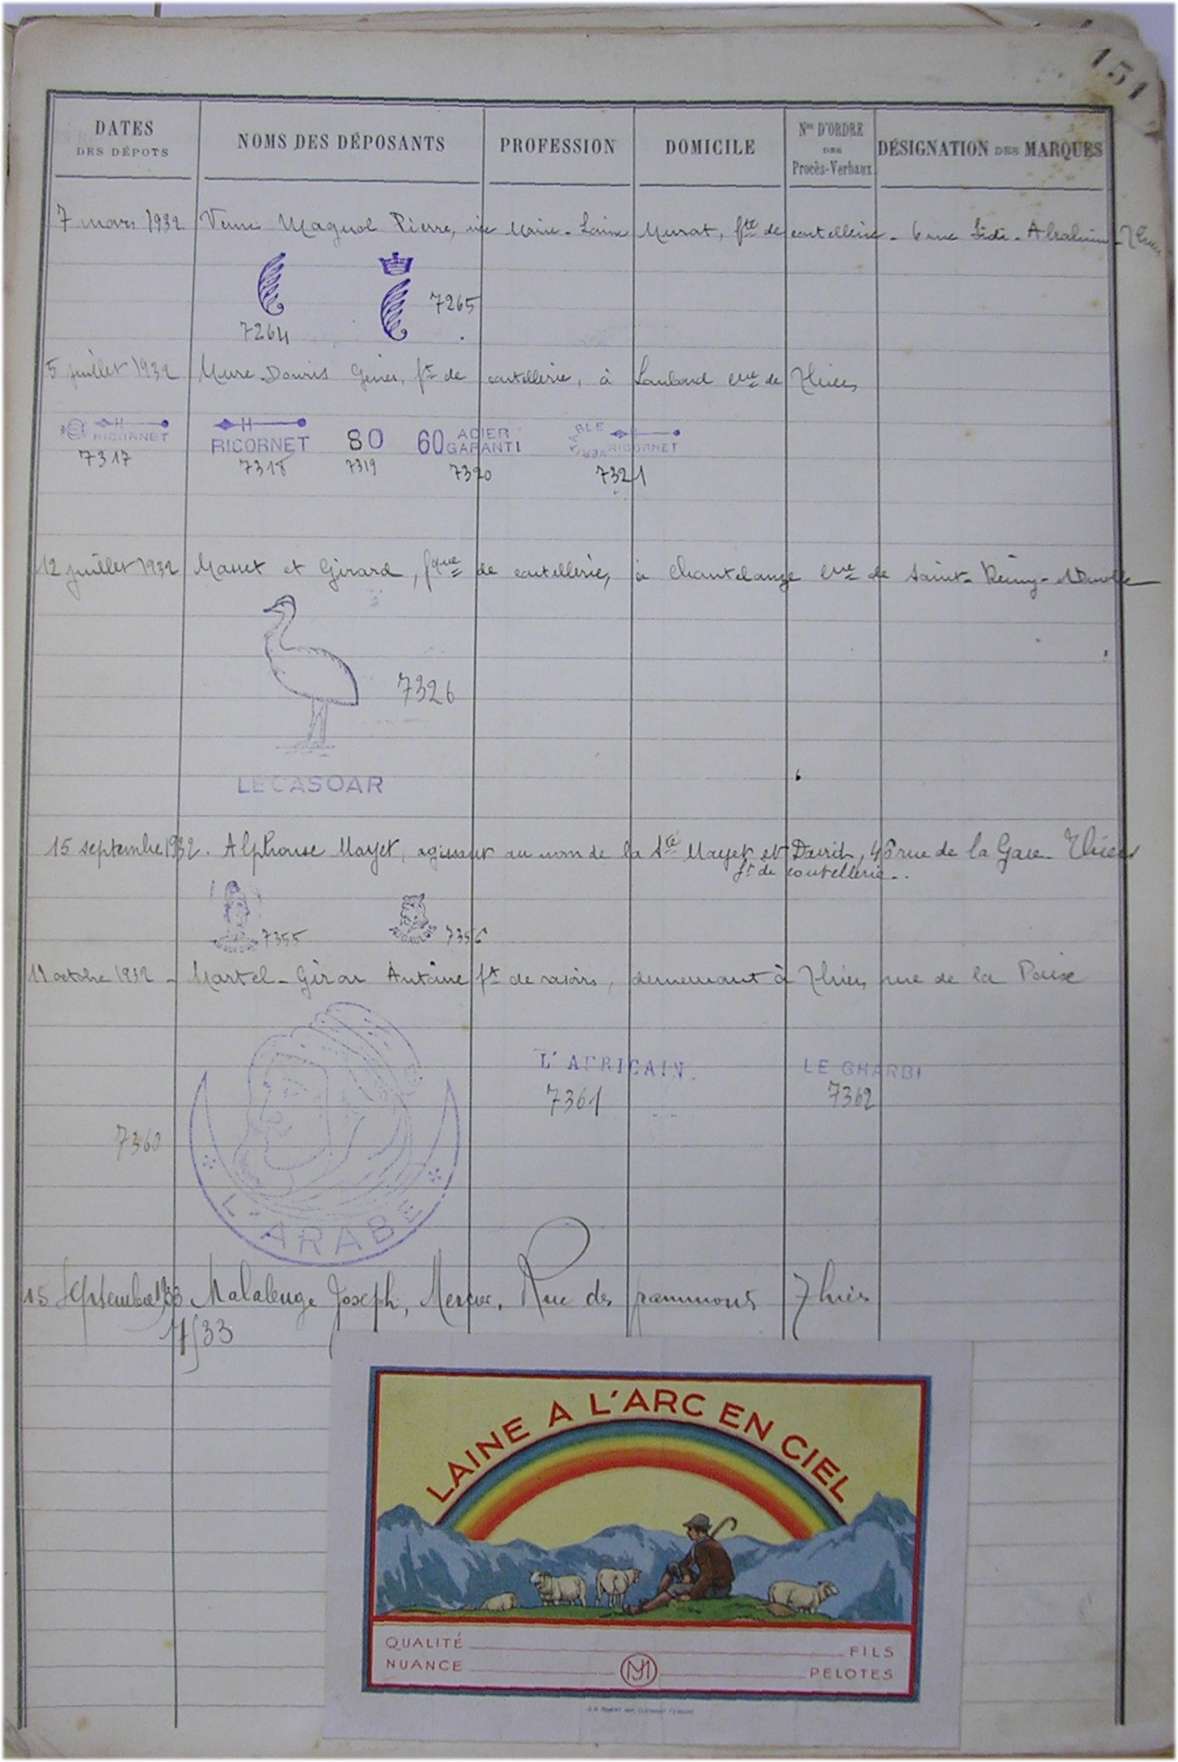 151
DATES DES DÉPOTS NOMS DES DÉPOSANTS PROFESSION DOMICILE Nos D'ORDRE DES Procès-Verbaux DÉSIGNATION DES MARQUES
7 mars 1932 Veuve Magnol Pierre, née Marie- Murat, fte de coutellerie - 6 rue Sidi-Brahim - Thiers
7264 7265
5 juillet 1932 Mure-Douris ft de coutellerie, à cne de Thiers
RICORNET RICORNET 80 60 ACIER GARANTI RICORNET
7317 7318 7319 7320 7321
12 juillet 1932 et Girard, fque de coutellerie, à Chantelauze cne de Saint-Rémy-
7326
LE CASOAR
15 septembre 1932. Alphonse Mayet, agissant au nom de la Sté Mayet et David, rue de la Gare - Thiers
ft de coutellerie -.
7355 7356
11 octobre 1932 - Martel-Giron Antoine ft de rasoirs, demeurant à Thiers rue de la Paix
L'AFRICAIN. LE GHARBI
7361 7362
7360
L'ARABE
15 Septembre 1933 Joseph, Rue des Thiers
LAINE A L'ARC EN CIEL
QUALITÉ FILS
NUANCE JM PELOTES